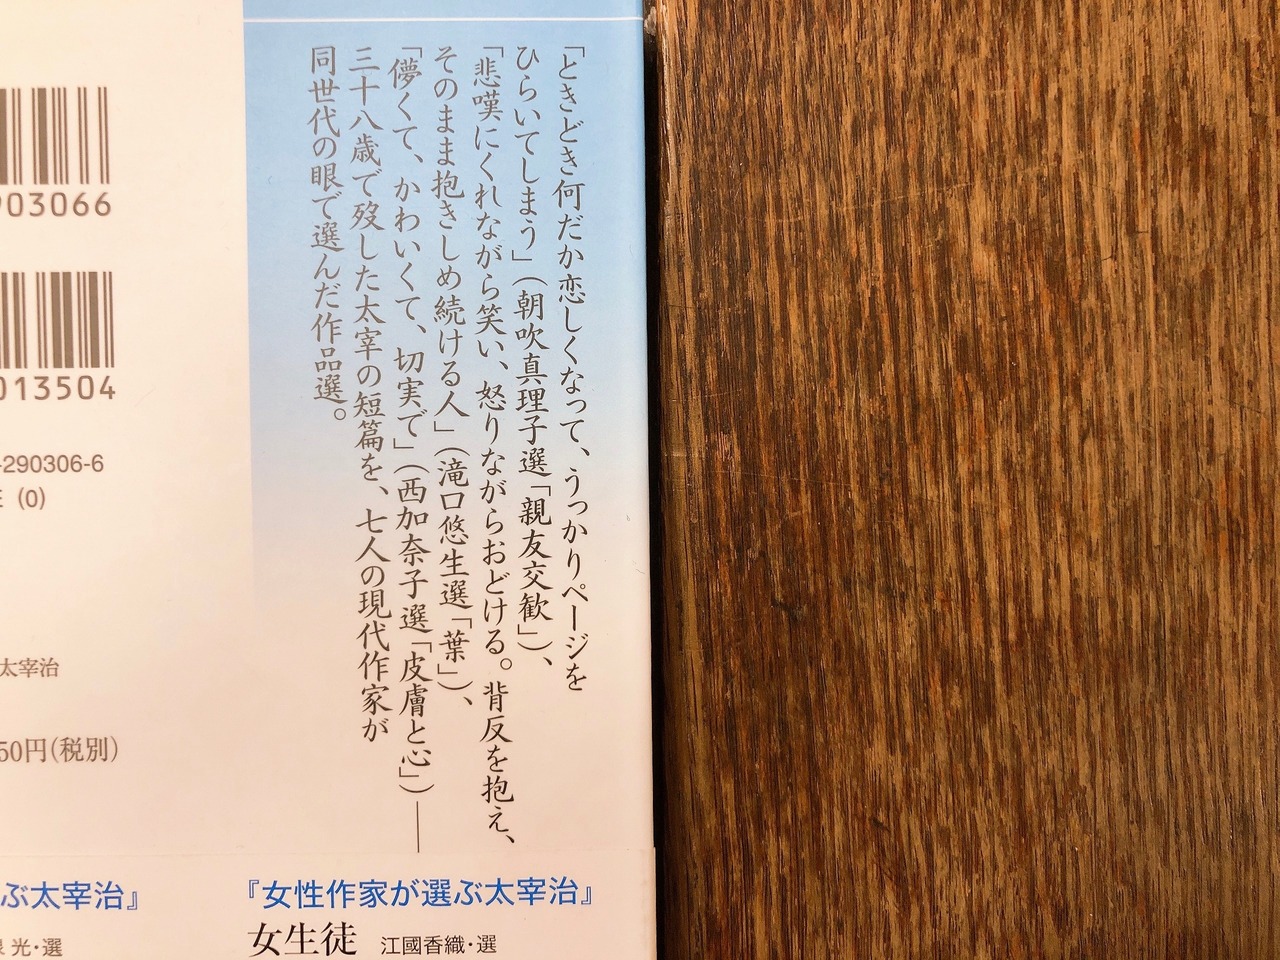 「ときどき何だか恋しくなって、うっかりページを
ひらいてしまう」（朝吹真理子選「親友交歓」）、
「悲嘆にくれながら笑い、怒りながらおどける。背反を抱え、
そのまま抱きしめ続ける人」（滝口悠生選「葉」）、
「儚くて、かわいくて、切実で」（西加奈子選「皮膚と心」）――
三十八歳で歿した太宰の短篇を、七人の現代作家が
同世代の眼で選んだ作品選。
903066
013504
-290306-6
(0)
太宰治
50円(税別)
ぶ太宰治』
光・選
『女性作家が選ぶ太宰治』
女生徒 江國香織・選